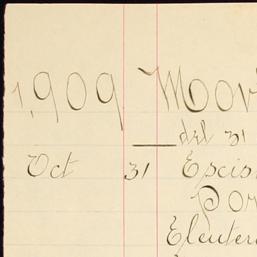 1909 Moov
del 31
Oct 31 Epcis
Por
Eleuter